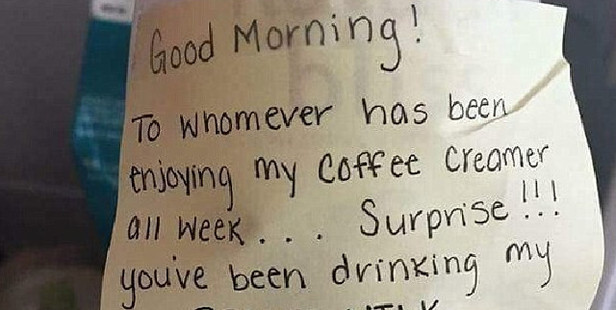 Good Morning!
To whomever has been
enjoying my coffee creamer
all week . . . Surprise!!!
you've been drinking my